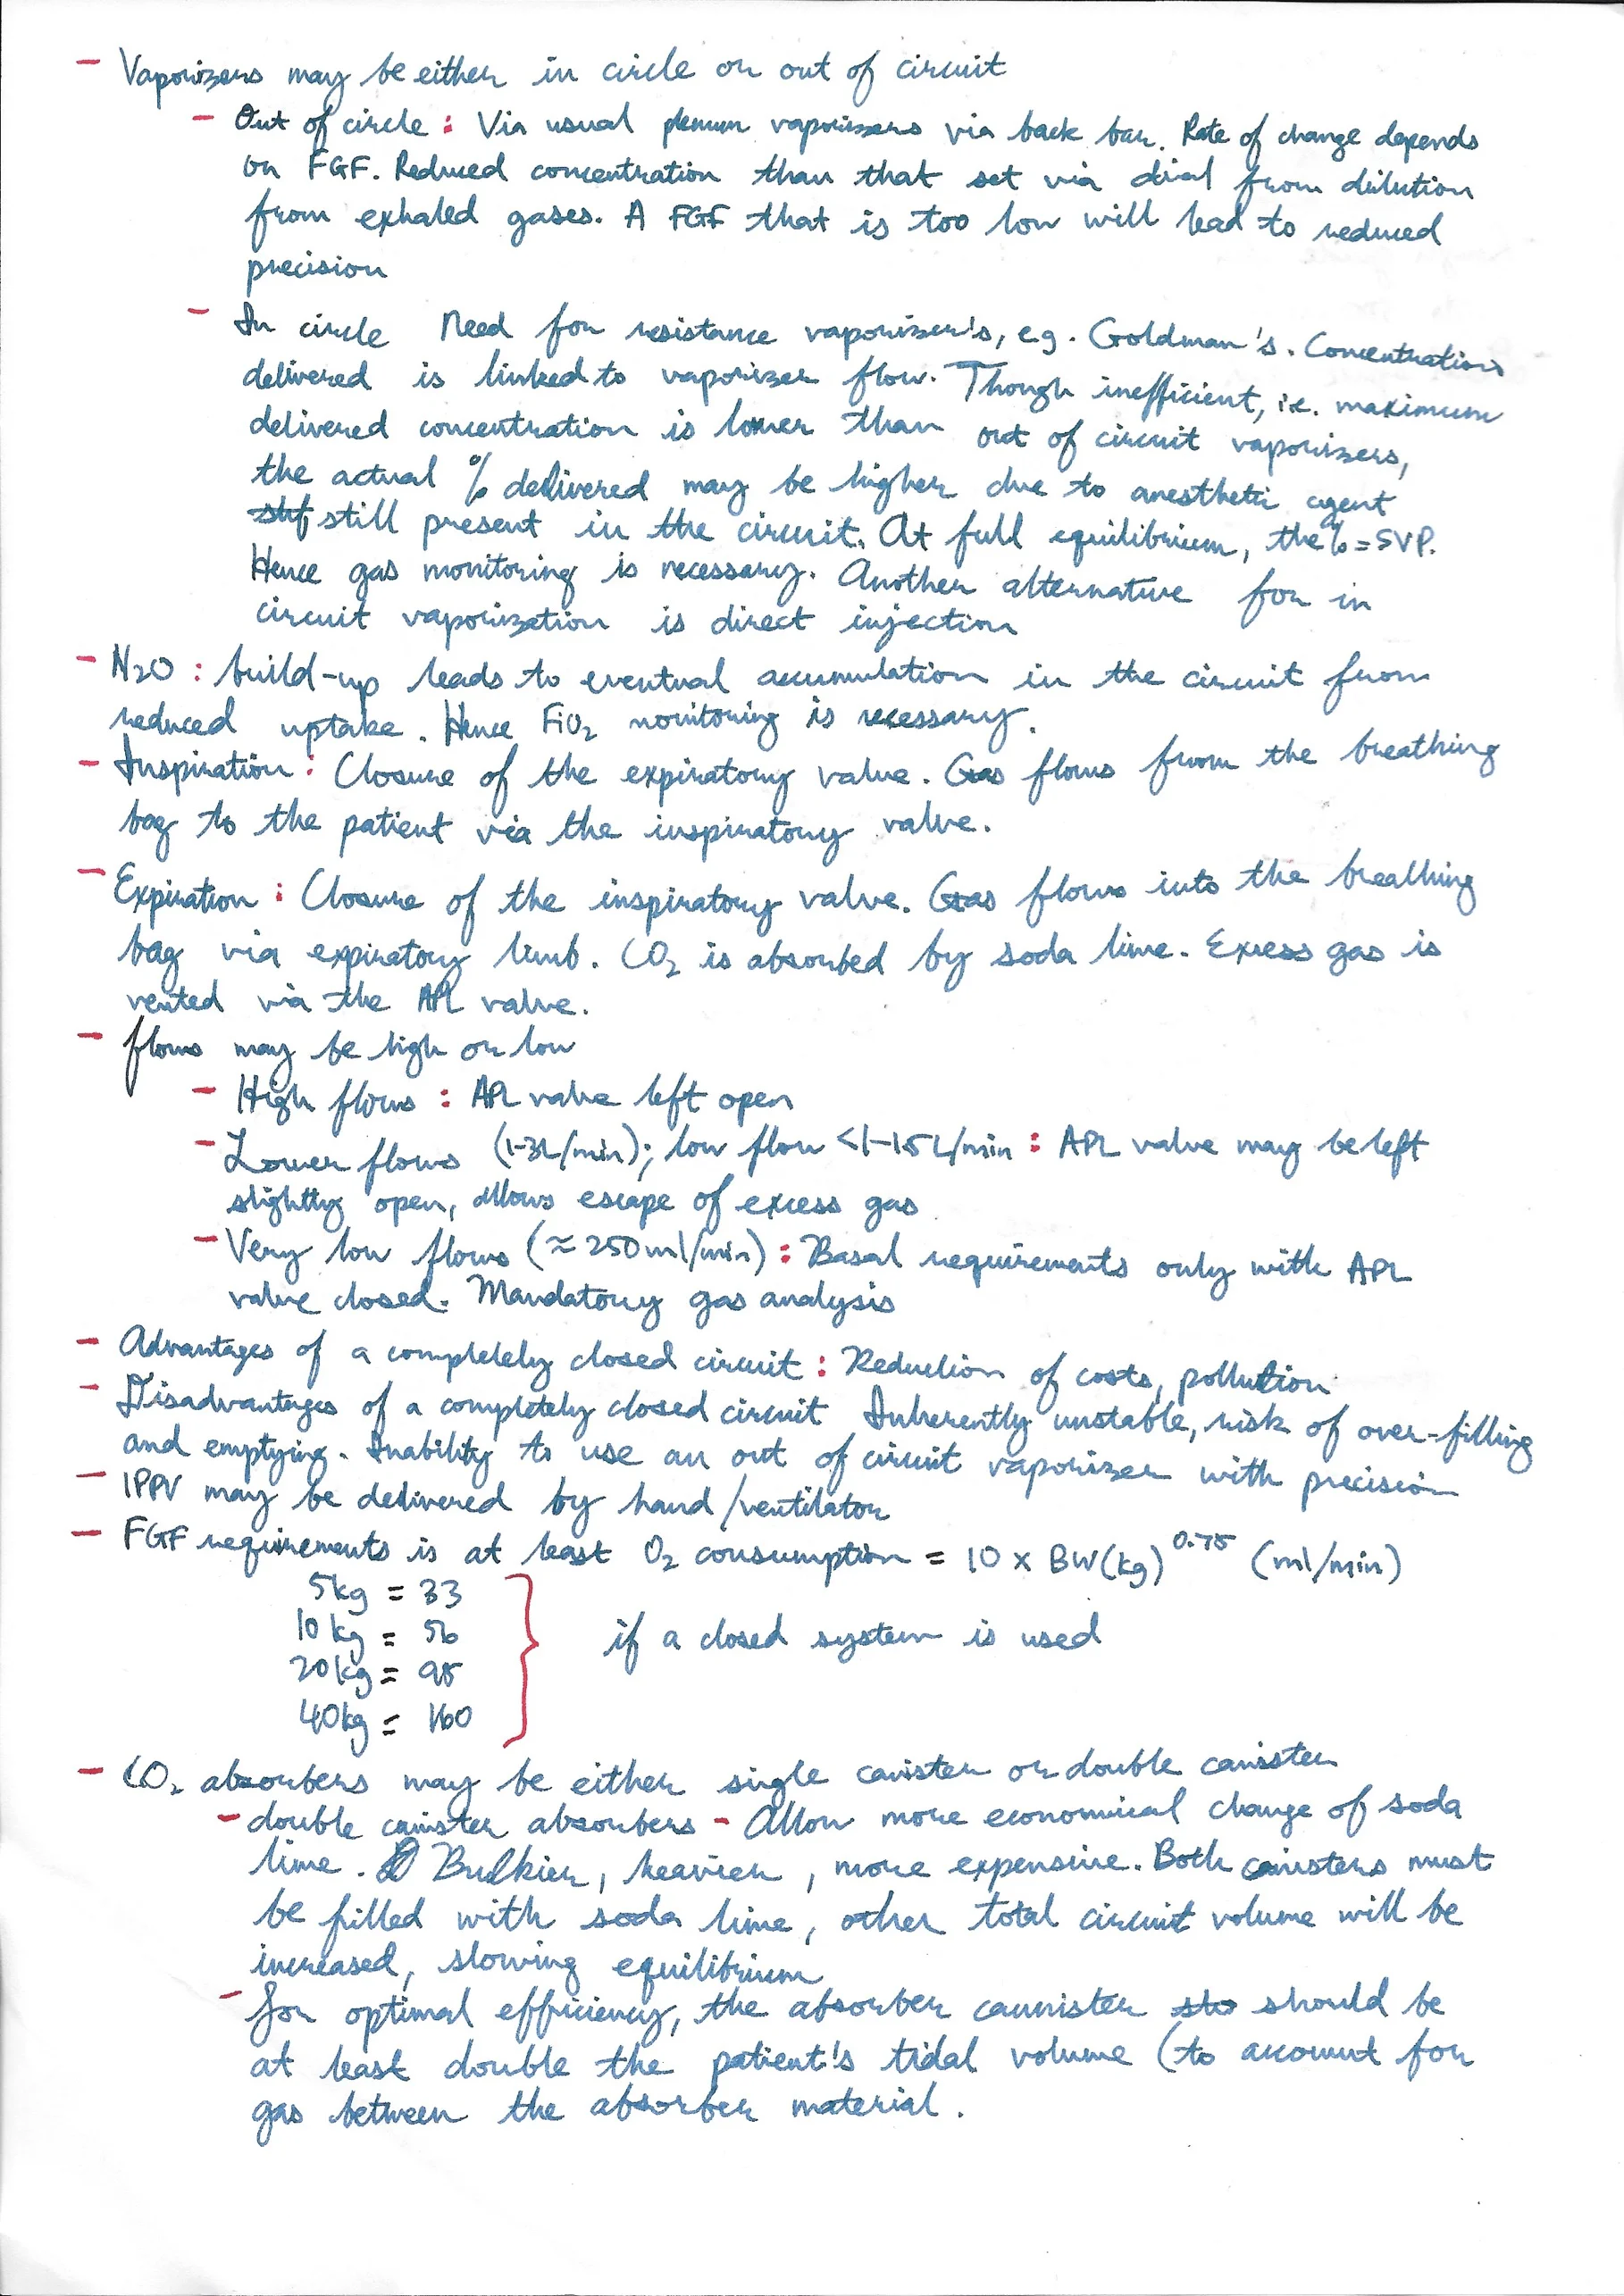 - Vaporizers may be either in circle or out of circuit
- Out of circle : Via usual plenum vaporizers via back bar. Rate of change depends
on FGF. Reduced concentration than that set via dial from dilution
from exhaled gases. A FGF that is too low will lead to reduced
precision
- In circle Need for resistance vaporizer's, e.g. Goldman's. Concentration
delivered is linked to vaporizer flow. Though inefficient, i.e. maximum
delivered concentration is lower than out of circuit vaporizers,
the actual % delivered may be higher due to anesthetic agent
still present in the circuit. At full equilibrium, the % = SVP.
Hence gas monitoring is necessary. Another alternative for in
circuit vaporization is direct injection
- N2O : build-up leads to eventual accumulation in the circuit from
reduced uptake. Hence FiO2 monitoring is necessary.
- Inspiration : Closure of the expiratory valve. Gas flows from the breathing
bag to the patient via the inspiratory valve.
- Expiration : Closure of the inspiratory valve. Gas flows into the breathing
bag via expiratory limb. CO2 is absorbed by soda lime. Excess gas is
vented via the APL valve.
- flows may be high or low
- High flows : APL valve left open
- Lower flows (1-3L/min); low flow <1-1.5L/min : APL valve may be left
slightly open, allows escape of excess gas
- Very low flows (≈250ml/min) : Basal requirements only with APL
valve closed. Mandatory gas analysis
- Advantages of a completely closed circuit : Reduction of costs, pollution
- Disadvantages of a completely closed circuit Inherently unstable, risk of over-filling
and emptying. Inability to use an out of circuit vaporizer with precision
- IPPV may be delivered by hand/ventilator
- FGF requirements is at least O2 consumption = 10 x BW(kg)^0.75 (ml/min)
5kg = 33
10kg = 56
20kg = 95 if a closed system is used
40kg = 160
- CO2 absorbers may be either single canister or double canister
- double canister absorbers - Allow more economical change of soda
lime. Bulkier, heavier, more expensive. Both canisters must
be filled with soda lime, other total circuit volume will be
increased, slowing equilibrium
- for optimal efficiency, the absorber cannister should be
at least double the patient's tidal volume (to account for
gas between the absorber material.